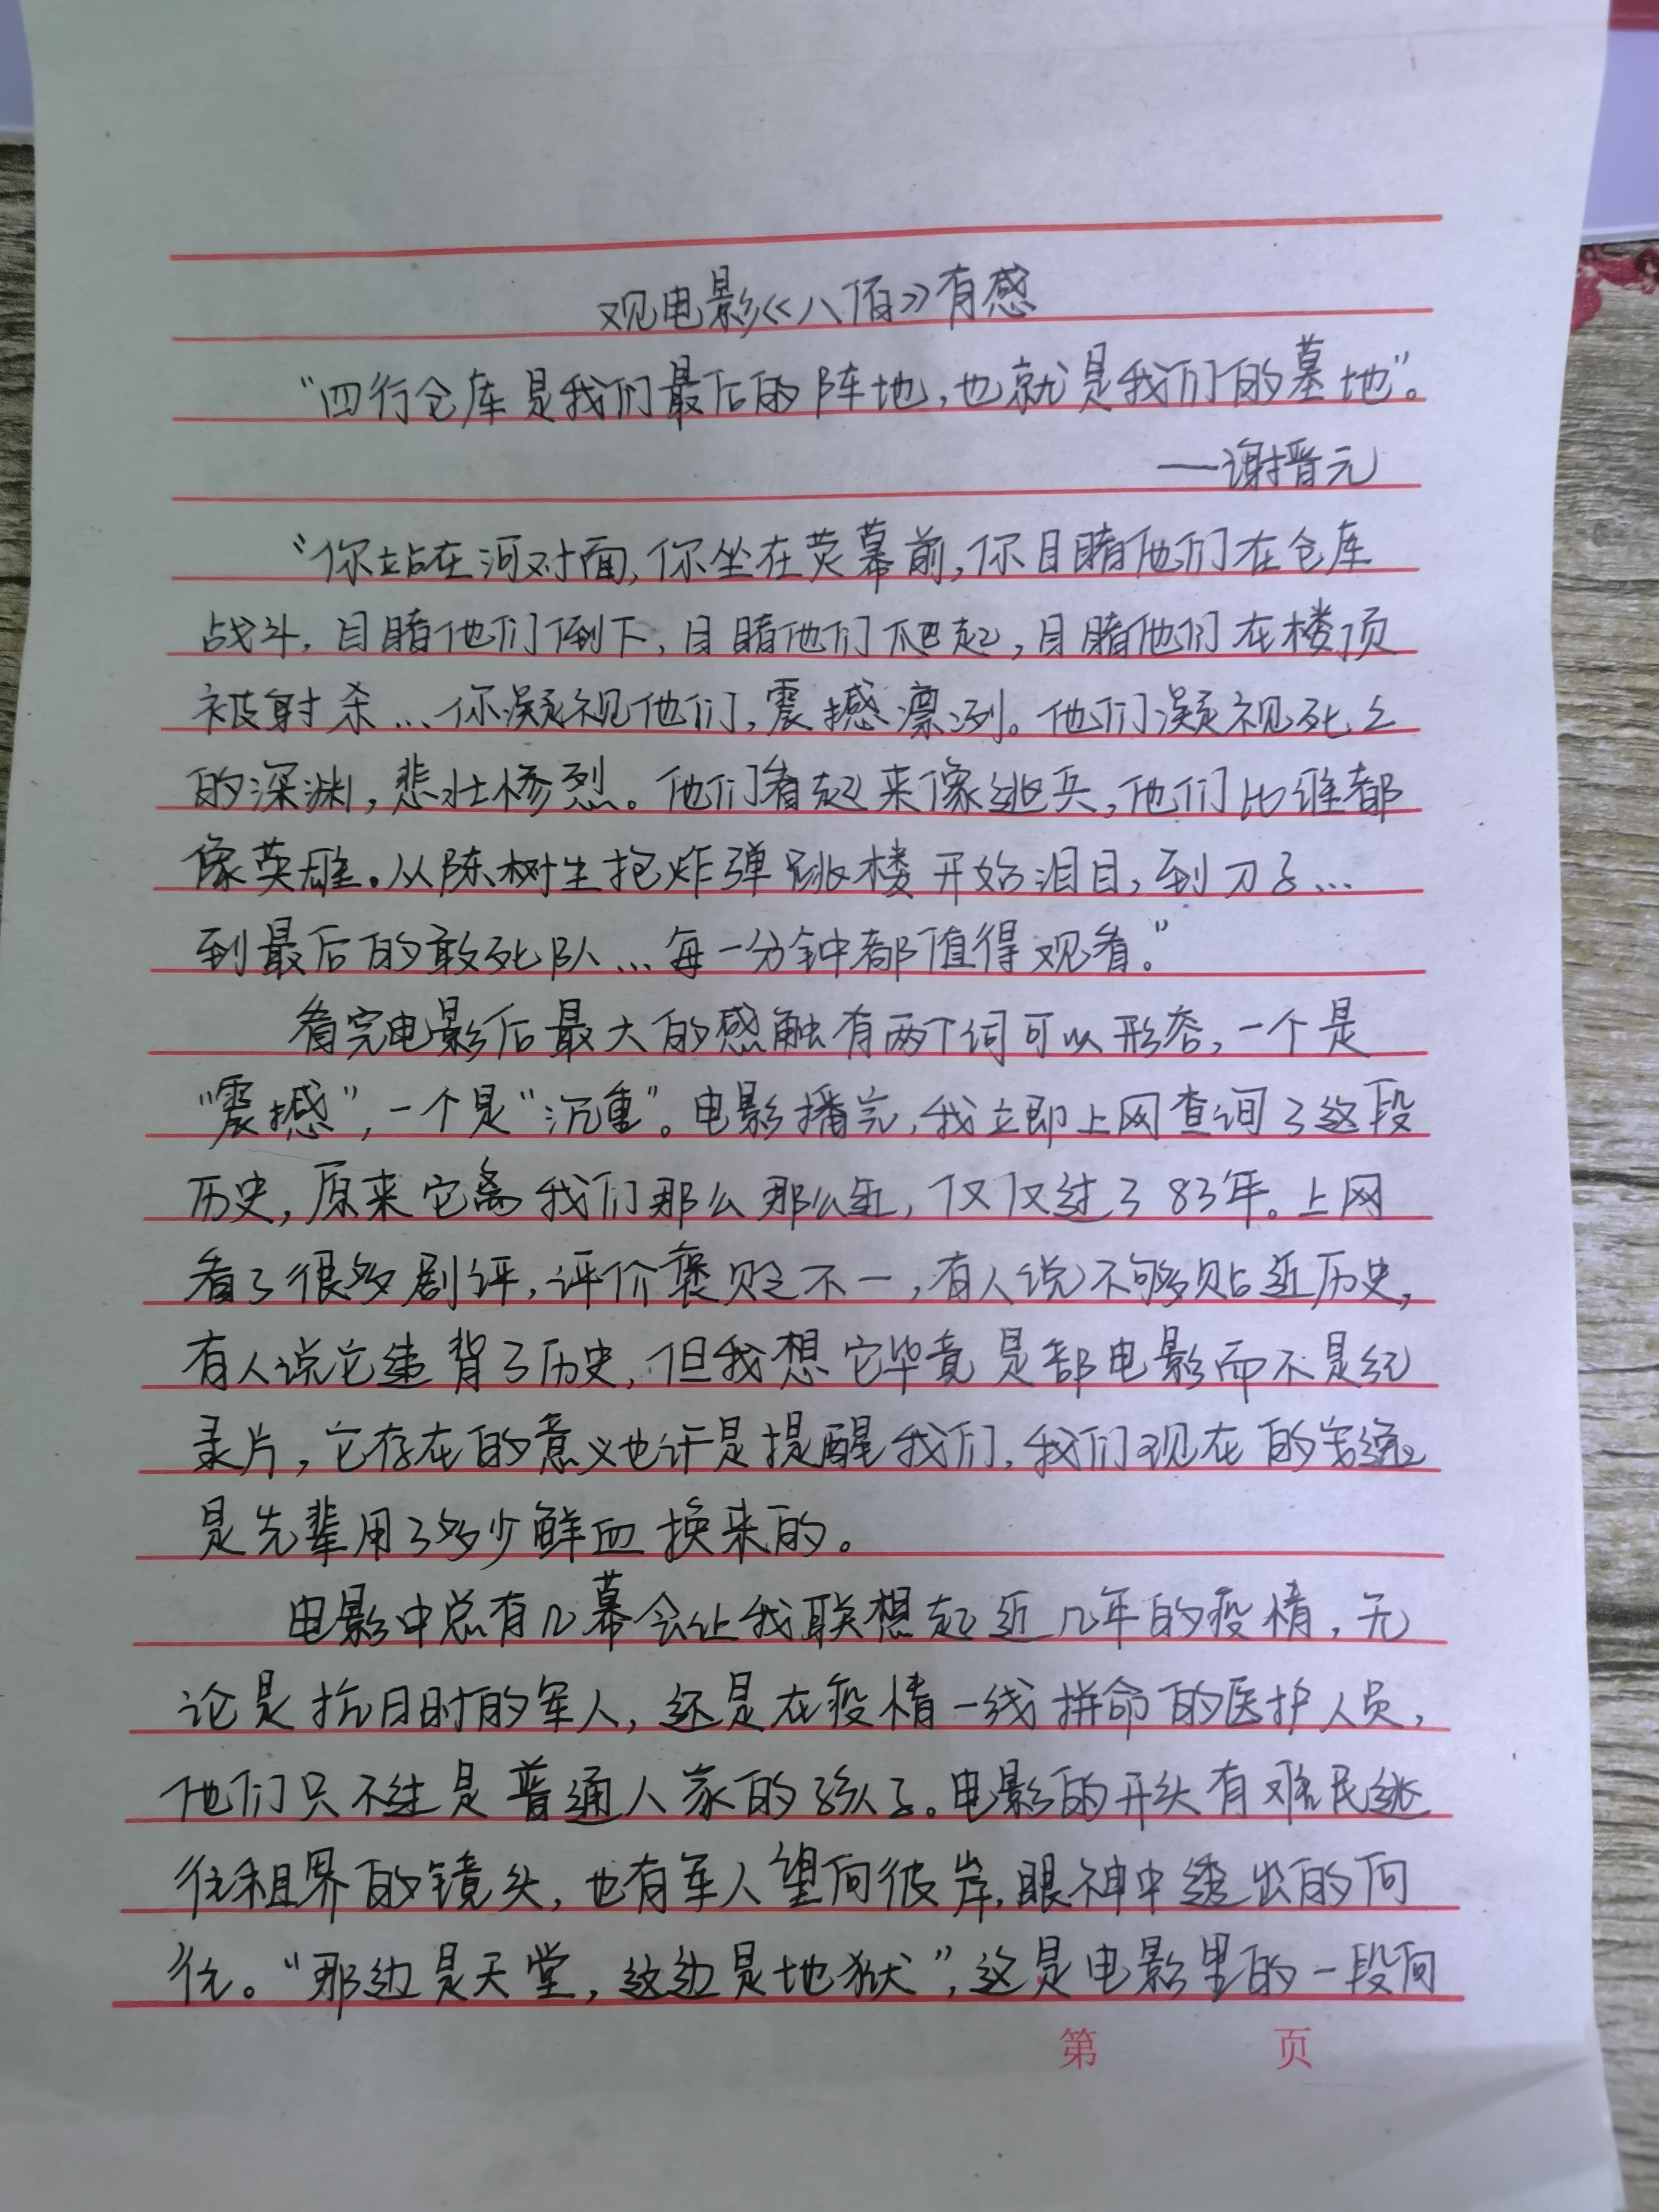 观电影《八佰》有感
“四行仓库是我们最后的阵地，也就是我们的墓地”。
——谢搢元
“你站在河对面，你坐在荧幕前，你目睹他们在仓库
战斗，目睹他们倒下，目睹他们爬起，目睹他们在楼顶
被射杀…你凝视他们，震撼凛冽。他们凝视死亡
的深渊，悲壮惨烈。他们看起来像逃兵，他们比谁都
像英雄。从陈树生抱炸弹跳楼开始泪目，到刀子…
到最后的敢死队…每一分钟都值得观看。”
看完电影后最大的感触有两个词可以形容，一个是
“震撼”，一个是“沉重”。电影播完，我立即上网查询了这段
历史，原来它离我们那么那么近，仅仅过了83年。上网
看了很多剧评，评价褒贬不一，有人说不够贴近历史，
有人说它违背了历史，但我想它毕竟是部电影而不是纪
录片，它存在的意义也许是提醒我们，我们现在的安逸
是先辈用了多少鲜血换来的。
电影中总有几幕会让我联想起近几年的疫情，无
论是抗日时的军人，还是在疫情一线拼命的医护人员，
他们只不过是普通人家的孩子。电影的开头有难民逃
往租界的镜头，也有军人望向彼岸，眼神中透出的向
往。“那边是天堂，这边是地狱”，这是电影里的一段间
第 页